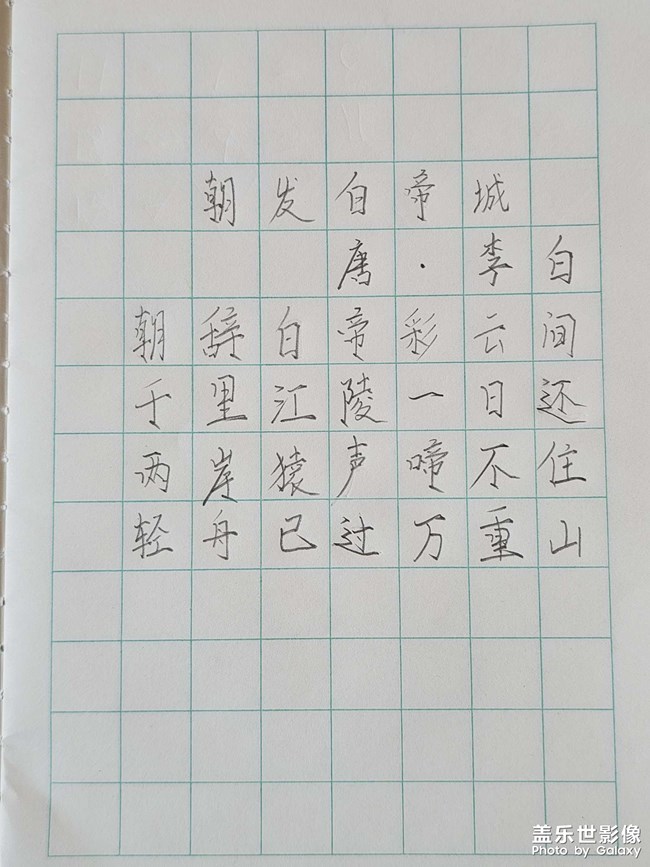 朝发白帝城
唐·李白
朝辞白帝彩云间
千里江陵一日还
两岸猿声啼不住
轻舟已过万重山
盖乐世影像
Photo by Galaxy